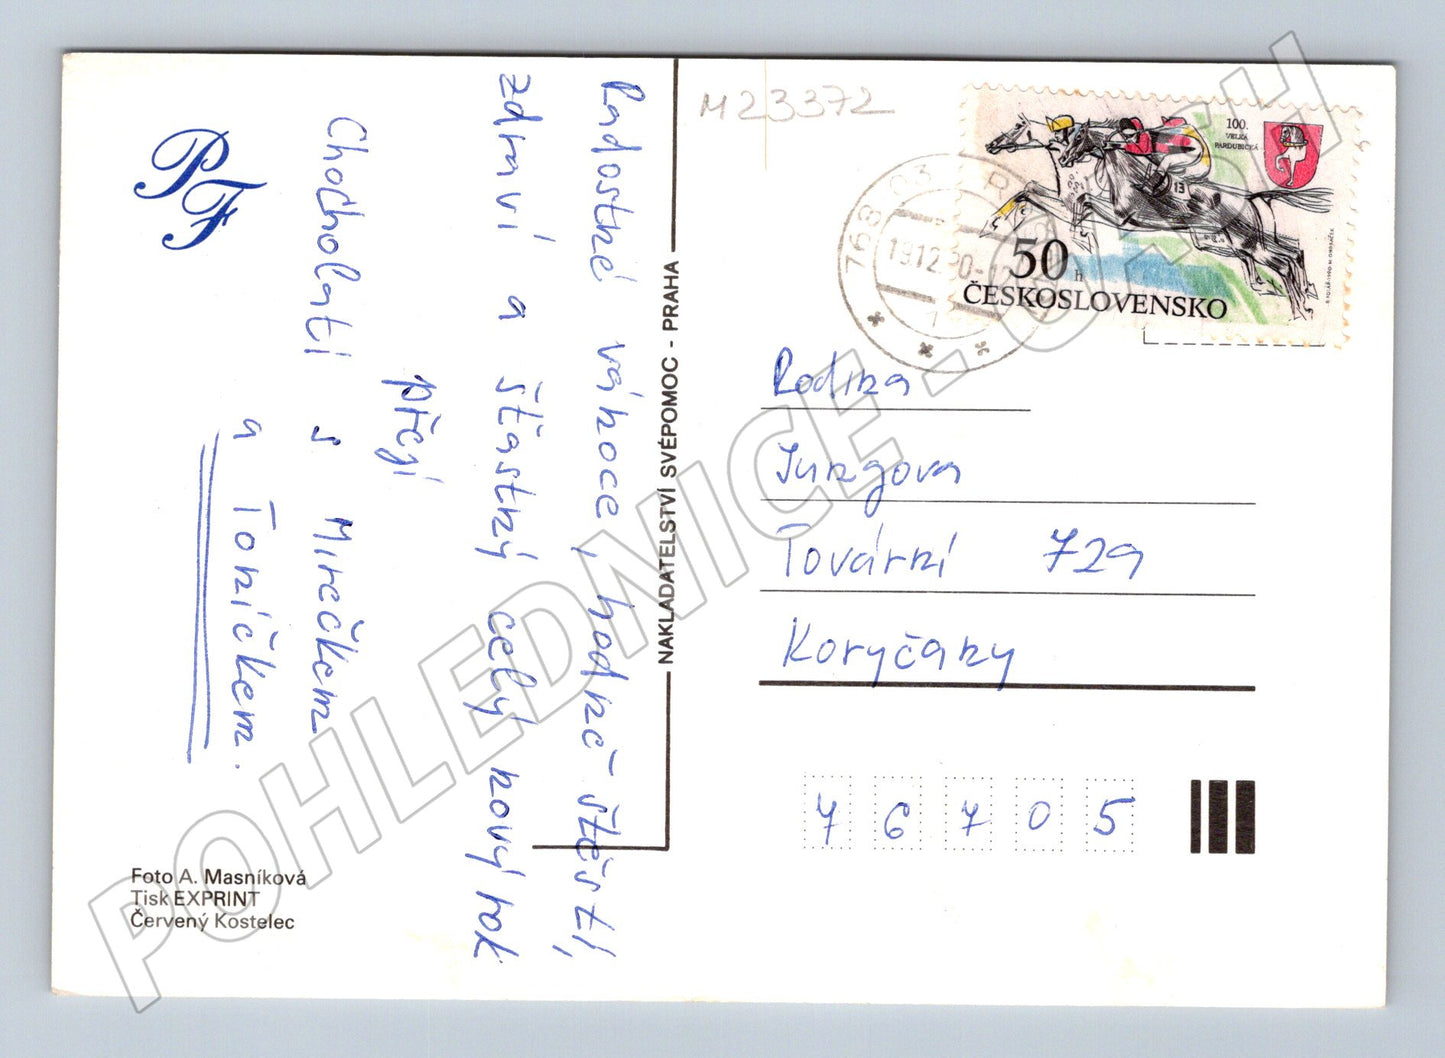 PF
Radostné vánoce, hodně štěstí,
zdraví a šťastný celý nový rok
přejí
Chocholatí s Mirečkem
a Toníčkem.
Foto A. Masníková
Tisk EXPRINT
Červený Kostelec
NAKLADATELSTVÍ SVÉPOMOC - PRAHA
M23372
768 03
19.12.90-12
1
100.
VELKÁ
PARDUBICKÁ
13
50 h
ČESKOSLOVENSKO
Rodina
Jurgova
Tovární 729
Koryčany
76705
POHLEDNICE